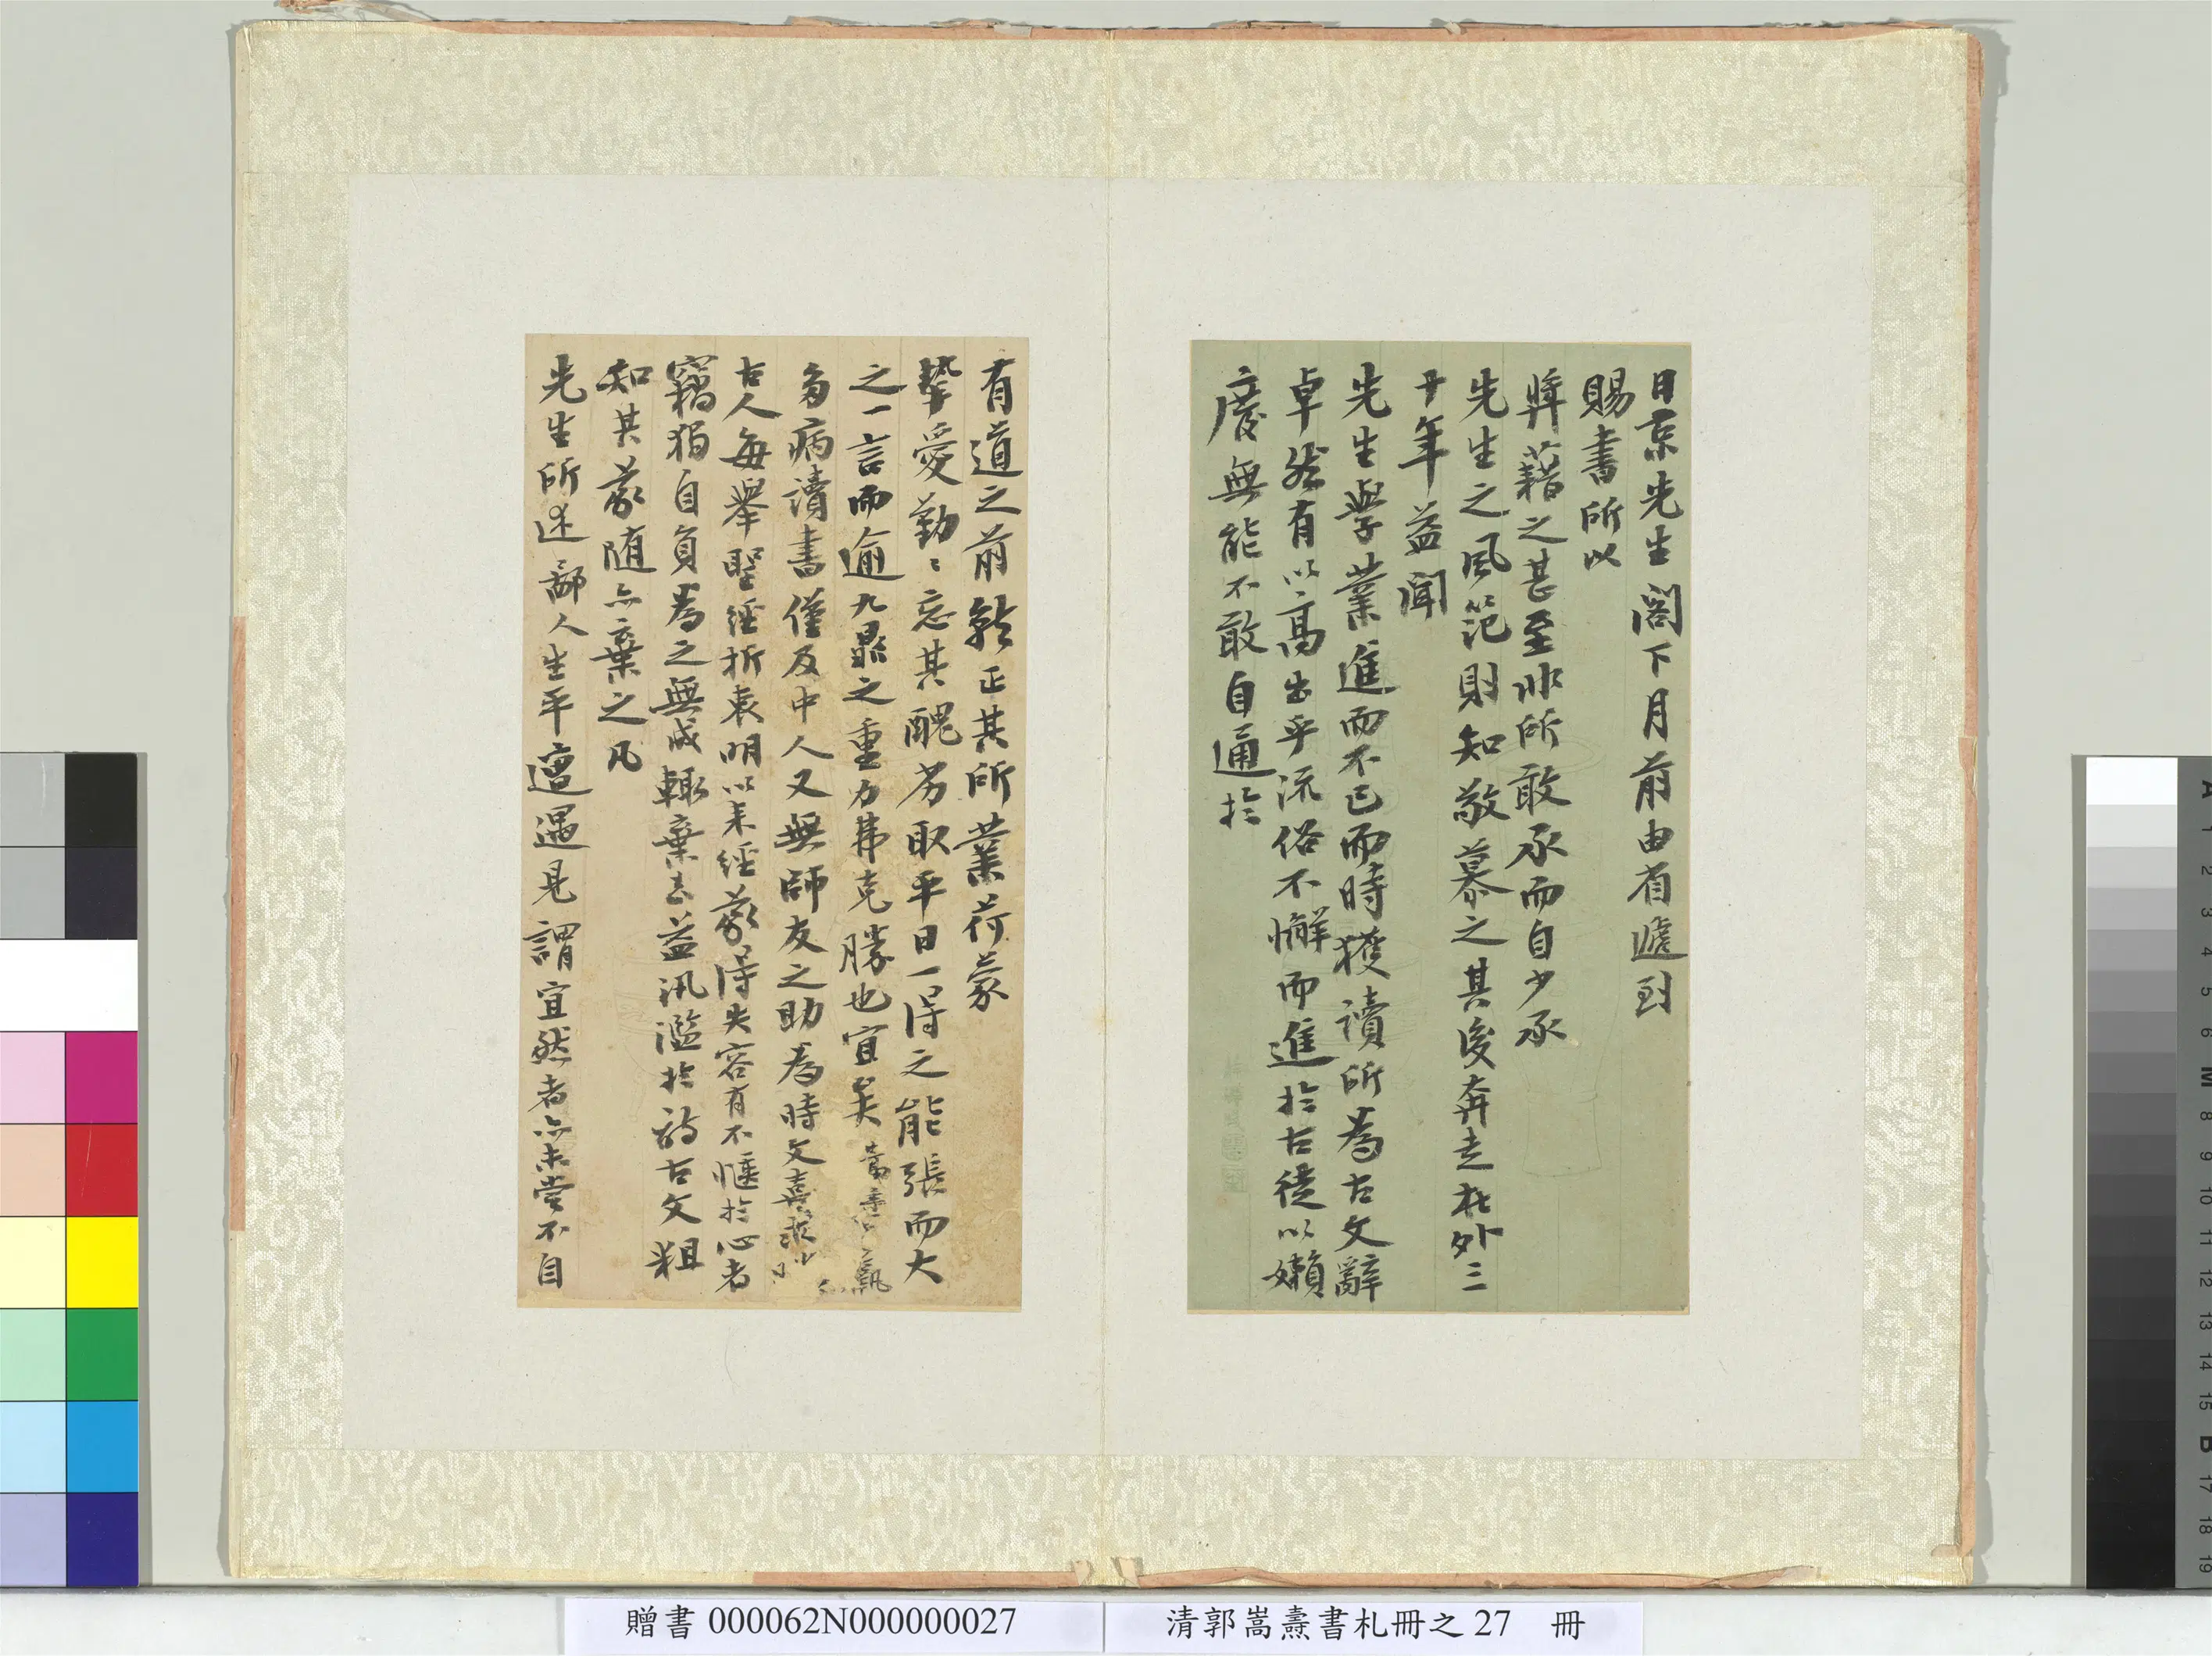 日京先生閣下月前由省遞到
賜書所以
獎藉之甚至非所敢承而自少承
先生之風范則知敬慕之其後奔走在外三
十年益聞
先生學業進而不已而時獲讀所為古文辭
卓然有以高出乎流俗不懈而進於古徒以嬾
廢無能不敢自通於
有道之前就正其所業荷蒙
摯愛勤〻忘其醜劣取平日一得之能張而大
之一言而逾九鼎之重力弗克勝也宜矣
多病讀書僅及中人又無師友之助為時文喜
古人每舉聖經折衷明以來經義得失容有不愜於心者
竊獨自負為之無成輒棄去益汎濫於詩古文粗
知其義隨亦棄之凡
先生所述鄙人生平遭遇見謂宜然者亦未嘗不自
贈書 000062N000000027
清郭嵩燾書札冊之 27 冊
A 1 2 3 4 5 6 M 8 9 10 11 12 13 14 15 B 17 18 19